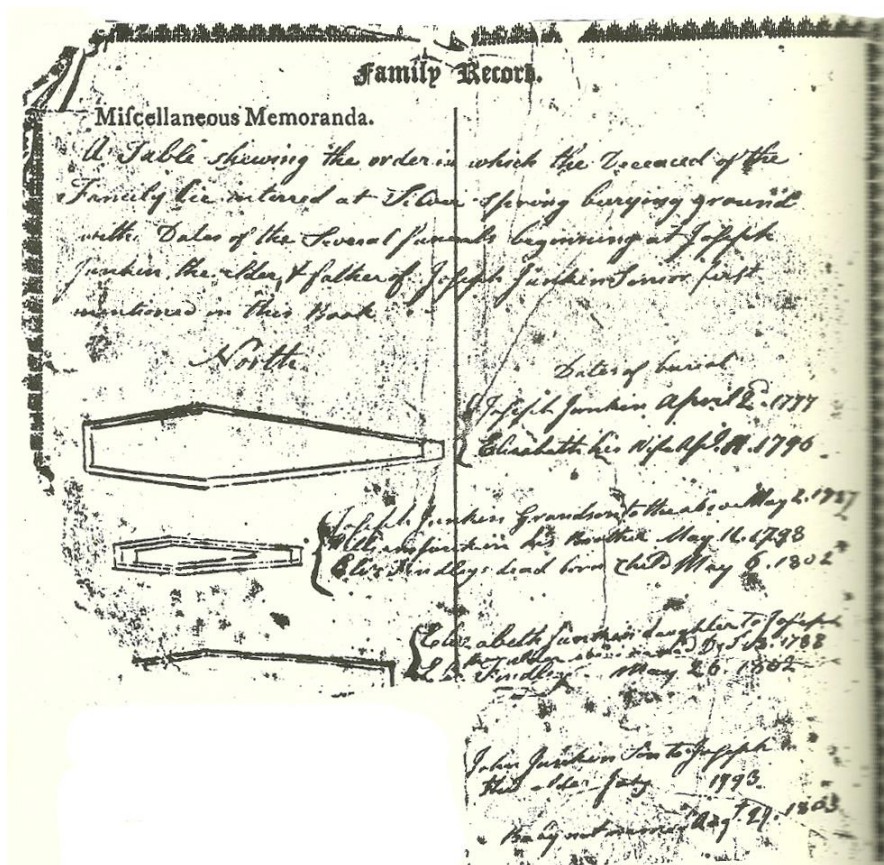 Family Record.
Miſcellaneous Memoranda.
A Table shewing the order in which the Deceased of the
Family lie interred at Silver Spring burying ground
with Dates of the Several funerals beginning at Joseph
Junkin the elder, & father of Joseph Junkin Senior first
mentioned in this Book
North
Dates of burial
Joseph Junkin April 2d. 1777
Elizabeth his Wife Apl. 1796
Joseph Junkin Grandson to the above May 2. 1787
Junkin his Brother May 11. 1798
Eliz. Findley's dead born Child May 6. 1802
Elizabeth Junkin daughter to Joseph
1788
Findley May 26. 1802
John Junkin Son to Joseph
the elder July 1793.
Baby not named Augt. 29. 1803